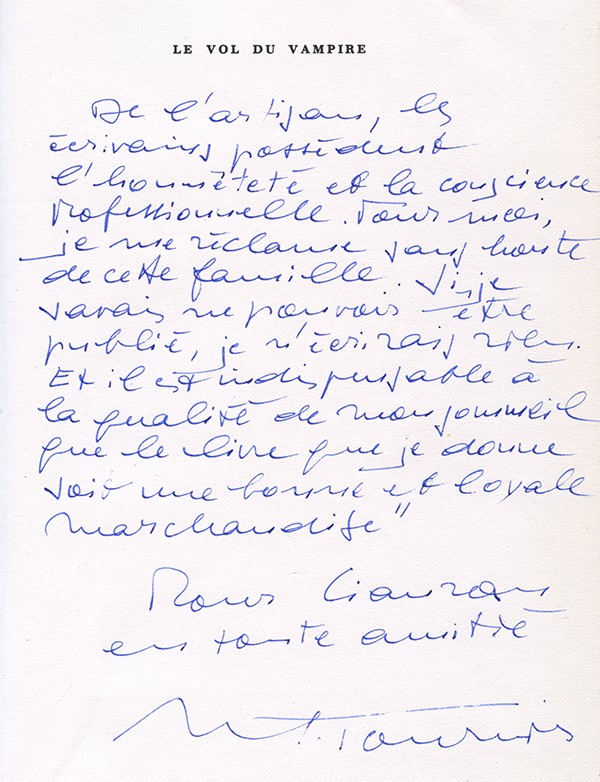 LE VOL DU VAMPIRE
De l'artisan, les
écrivains possèdent
l'honnêteté et la conscience
professionnelle. Pour moi,
je me réclame sans honte
de cette famille. Si je
savais ne pouvoir être
publié, je n'écrirais rien.
Et il est indispensable à
la qualité de mon sommeil
que le livre que je donne
soit une bonne et loyale
marchandise"
Pour
en toute amitié
M. Tournier